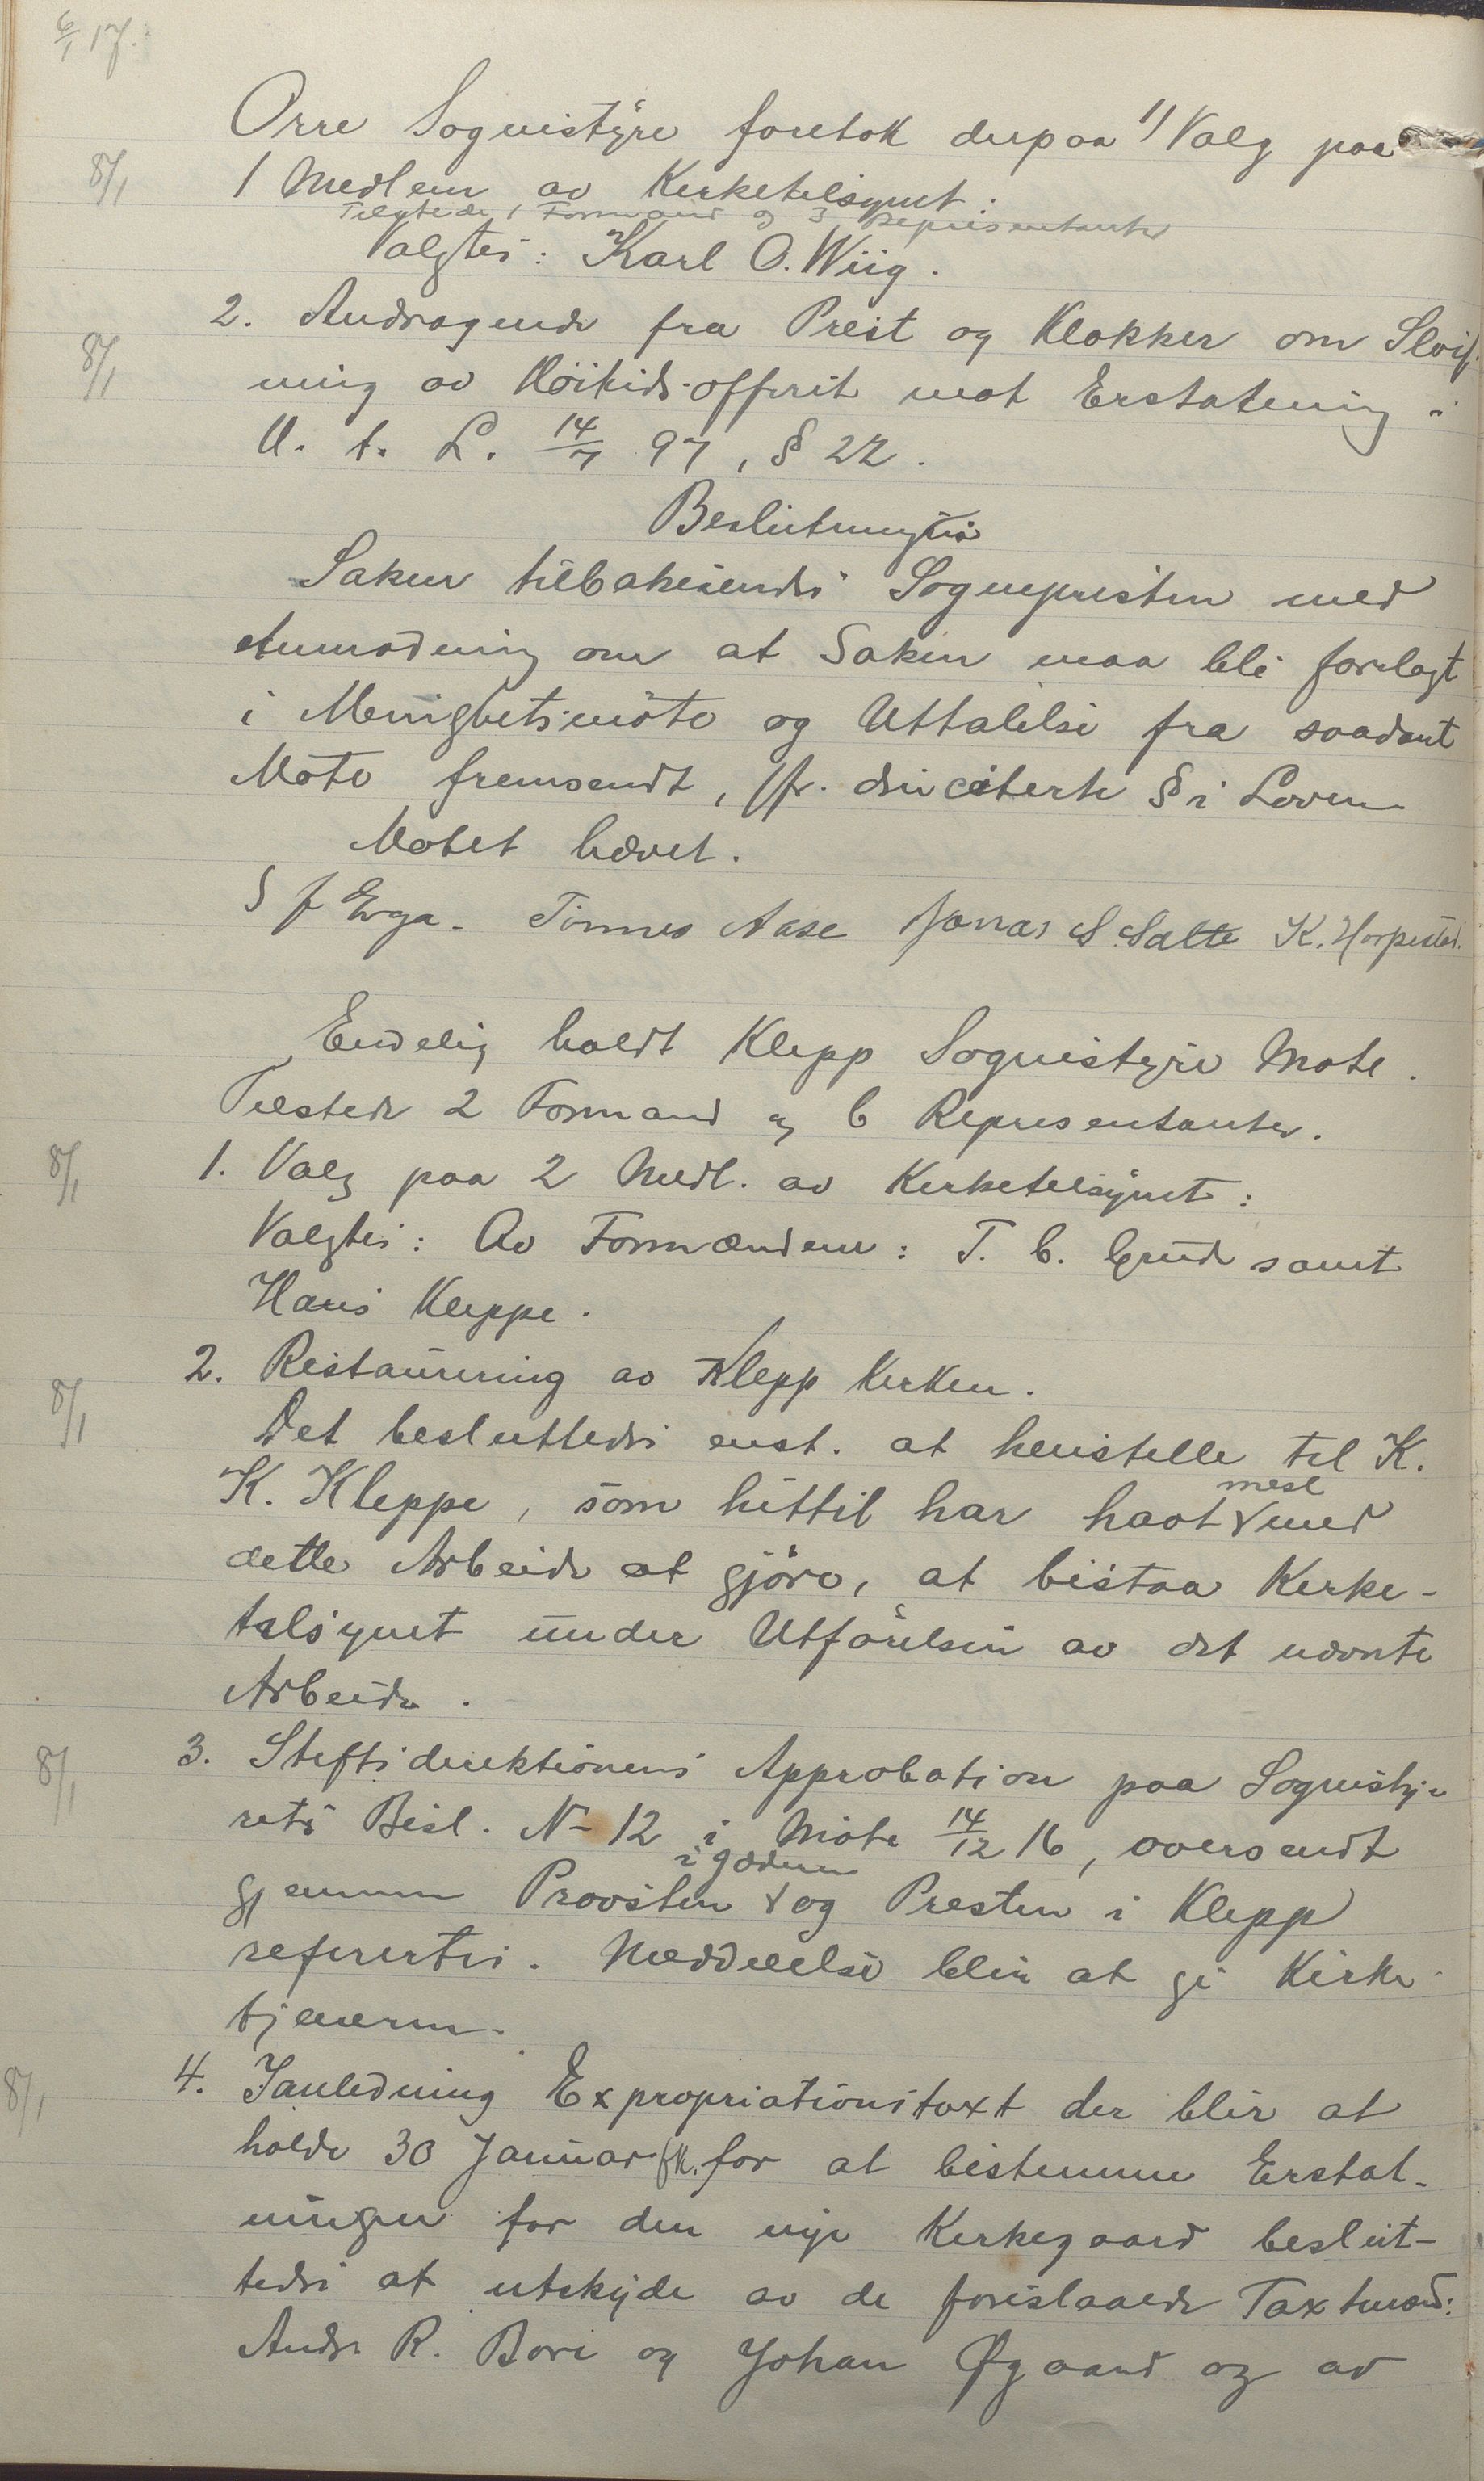 6/1 17.
Orre Sognestyre foretok derpaa 1) Valg paa
8/1
1 Medlem av Kirketilsynet:
Tilstede 1 Formand og 3 Representanter
Valgtes: Karl O. Wiig.
2. Andragende fra Prest og Klokker om Sløif-
8/1
ning av Høitids-offeret mot Erstatning i
H. t. L. 14/7 97, § 22.
Beslutning
Saken tilbakesendes Sognepresten med
Anmodning om at Saken maa bli forelagt
i Menighetsmöte og Uttalelse fra saadant
Möte fremsendt, jfr. den citerte § i Loven
Mötet hævet.
S J Erga. Tönnes Aase Jonas S. Salte K. Horpestad.
Endelig holdt Klepp Sognestyre Möte.
Tilstede 2 Formænd og 6 Representanter.
8/1
1. Valg paa 2 Medl. av Kirketilsynet:
Valgtes: Av Formændene: T. C. Grude samt
Hans Kleppe.
2. Restaurering av Klepp Kirken.
8/1
Det besluttedes enst. at henstille til K.
K. Kleppe, som hittil har havt mest med
dette Arbeide at gjöre, at bistaa Kirke-
tilsynet under Utförelsen av det nævnte
Arbeide.
3. Stiftsdirektionens Approbation paa Sognesty-
8/1
rets Besl. No 12 i Möte 14/12 16, oversendt
gjennem Provsten i Jæderen og Presten i Klepp
referertes. Meddelelse blir at gi Kirke-
tjeneren.
4. I anledning Expropriationstaxt der blir at
8/1
holde 30 Januar fk. for at bestemme Erstat-
ningen for den nye Kirkegaard beslut-
tedes at utskyde av de foreslaaede Taxtmænd:
Andr. R. Bore og Johan Øgaard og av